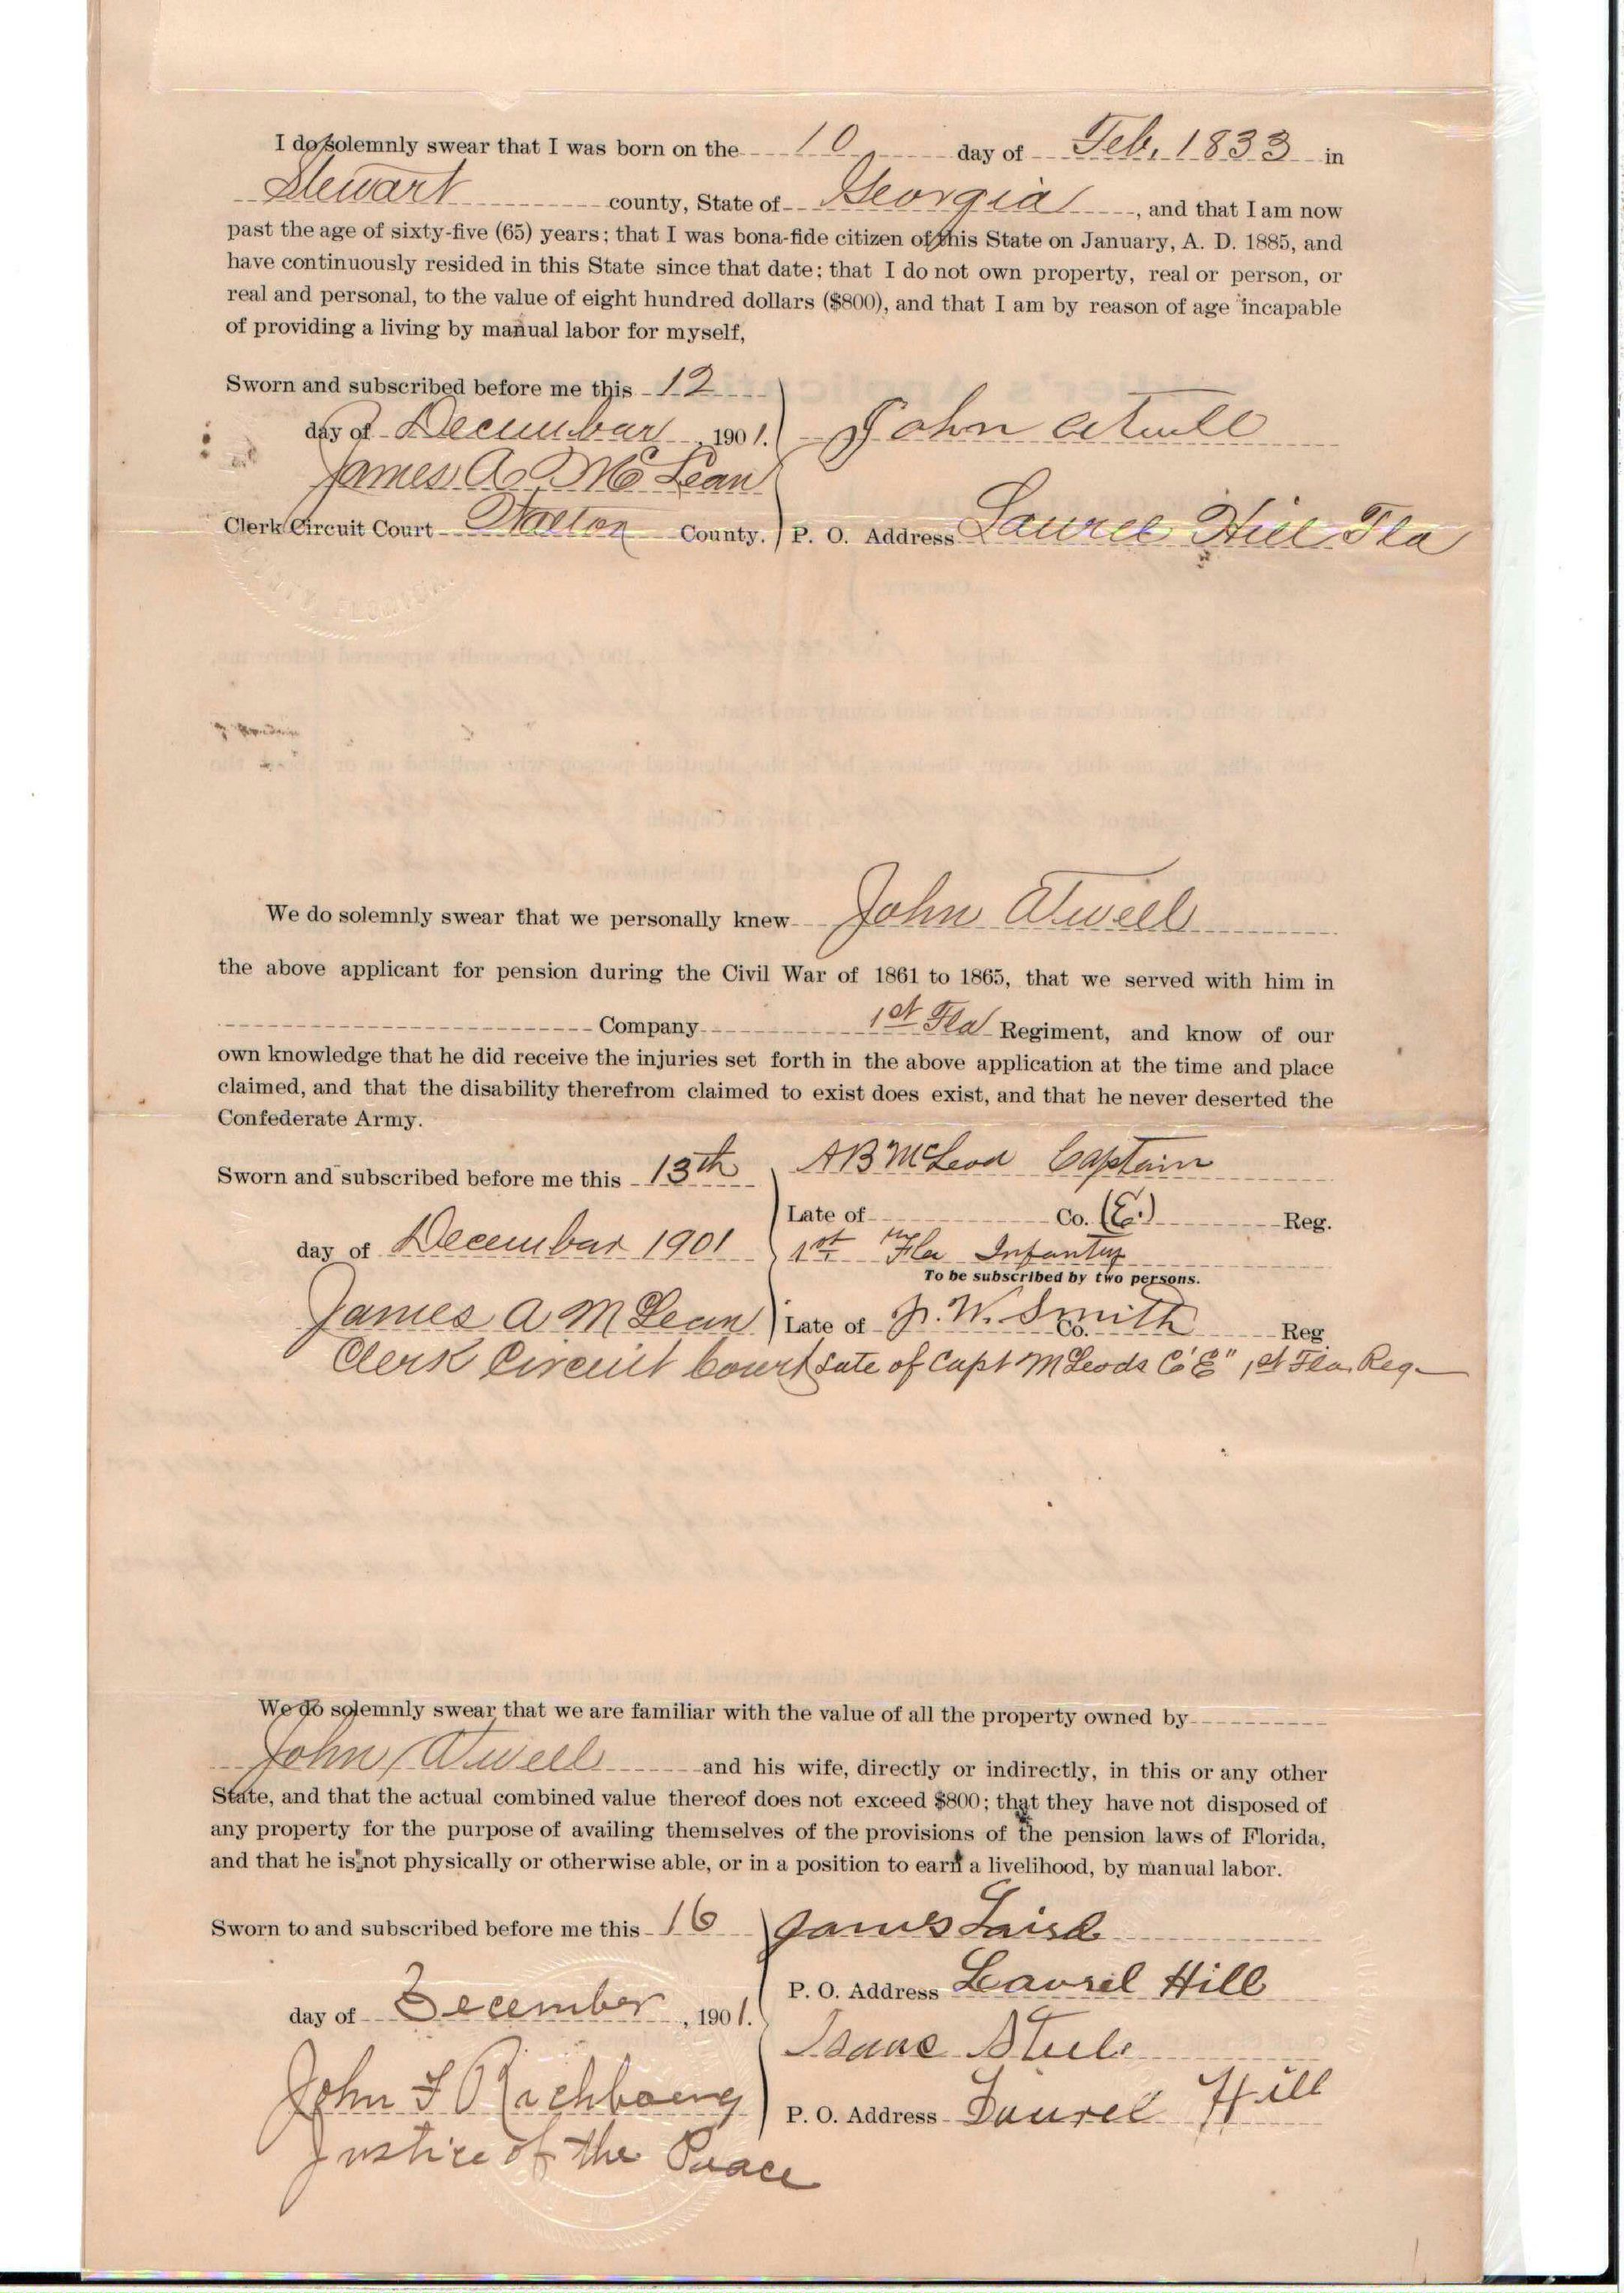 I do solemnly swear that I was born on the 10 day of Feb, 1833 in
Stewart county, State of Georgia, and that I am now
past the age of sixty-five (65) years; that I was bona-fide citizen of this State on January, A. D. 1885, and
have continuously resided in this State since that date; that I do not own property, real or person, or
real and personal, to the value of eight hundred dollars ($800), and that I am by reason of age incapable
of providing a living by manual labor for myself,
Sworn and subscribed before me this 12
day of December, 1901. John Atwell
James A. McLean
Clerk Circuit Court Walton County. P. O. Address Laurel Hill Fla
We do solemnly swear that we personally knew John Atwell
the above applicant for pension during the Civil War of 1861 to 1865, that we served with him in
Company 1st Fla Regiment, and know of our
own knowledge that he did receive the injuries set forth in the above application at the time and place
claimed, and that the disability therefrom claimed to exist does exist, and that he never deserted the
Confederate Army.
Sworn and subscribed before me this 13th AB McLeod Captain
Late of Co. (E.) Reg.
day of December 1901 1st Fla Infantry
To be subscribed by two persons.
James A McLean Late of J. W. Smith Co. Reg
Clerk Circuit Court Late of Capt McLeods Co "E" 1st Fla. Reg.
We do solemnly swear that we are familiar with the value of all the property owned by
John Atwell and his wife, directly or indirectly, in this or any other
State, and that the actual combined value thereof does not exceed $800; that they have not disposed of
any property for the purpose of availing themselves of the provisions of the pension laws of Florida,
and that he is not physically or otherwise able, or in a position to earn a livelihood, by manual labor.
Sworn to and subscribed before me this 16 James Laird
P. O. Address Laurel Hill
day of December, 1901.
Isaac Steele
John F Richbourg
P. O. Address Laurel Hill
Justice of the Peace